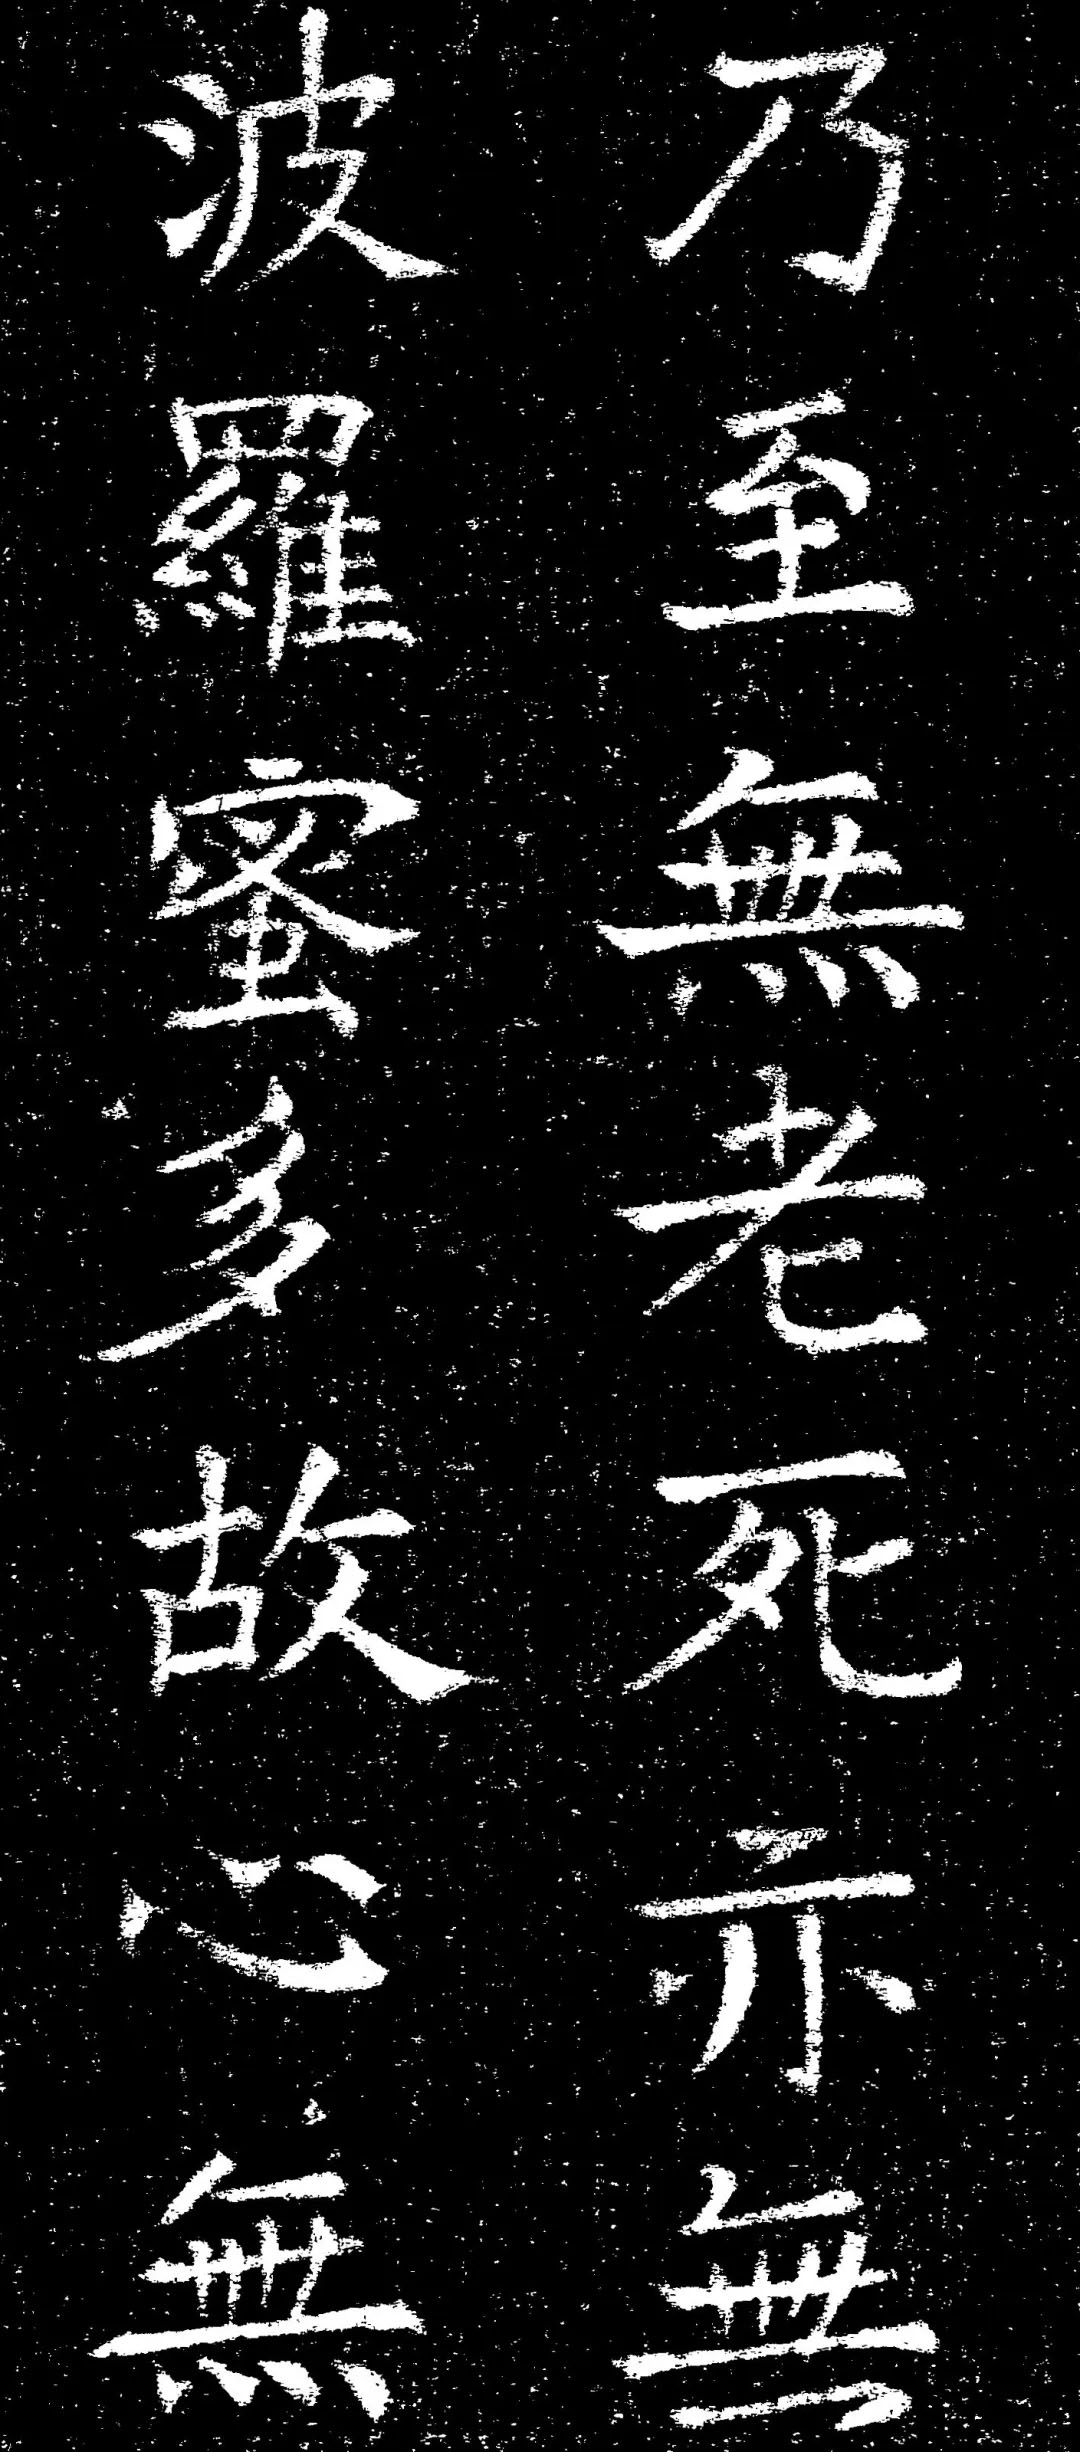 乃至無老死亦無
波羅蜜多故心無